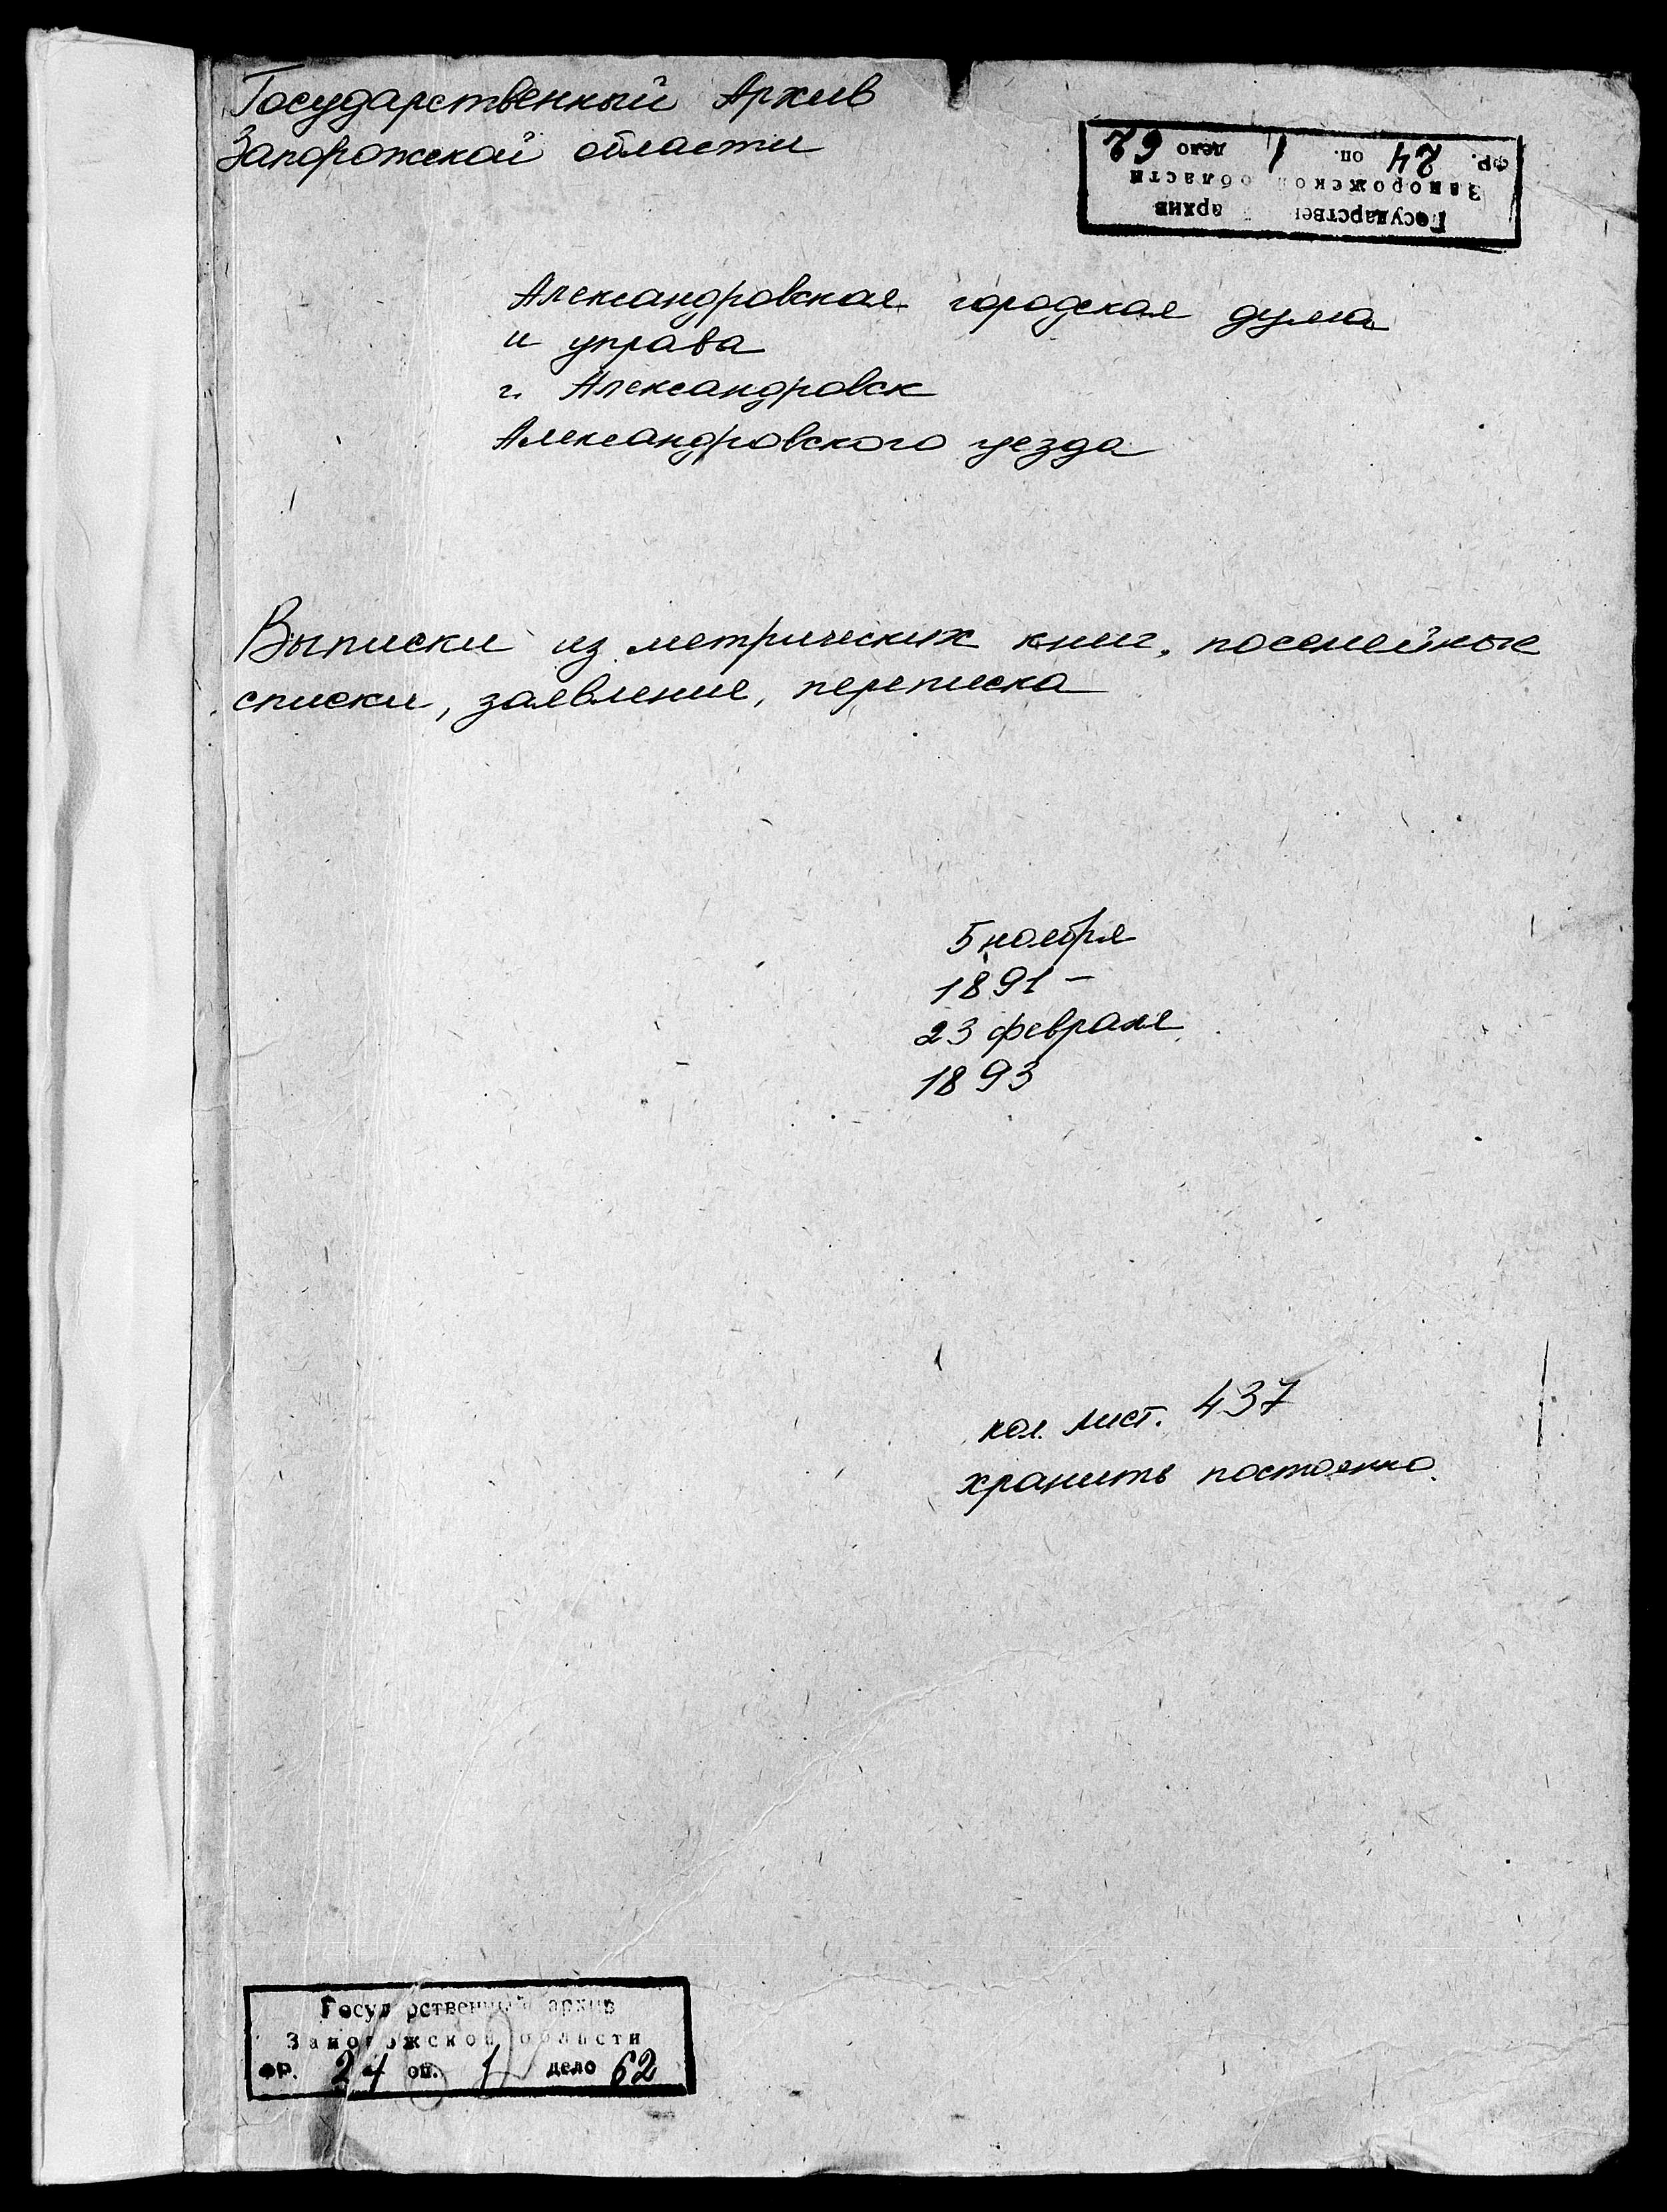 Государственный Архив
Запорожской области
Государствен архив
Запорожской области
ФР. 24 оп. 1 дело 62
Александровская городская дума
и управа
г. Александровск
Александровского уезда
Выписки из метрических книг, посемейные
списки, заявление, переписка
5 ноября
1891 –
23 февраля
1893
кол. лист. 437
хранить постоянно.
Государственный архив
Запорожской области
ФР. 24 оп. 1 дело 62